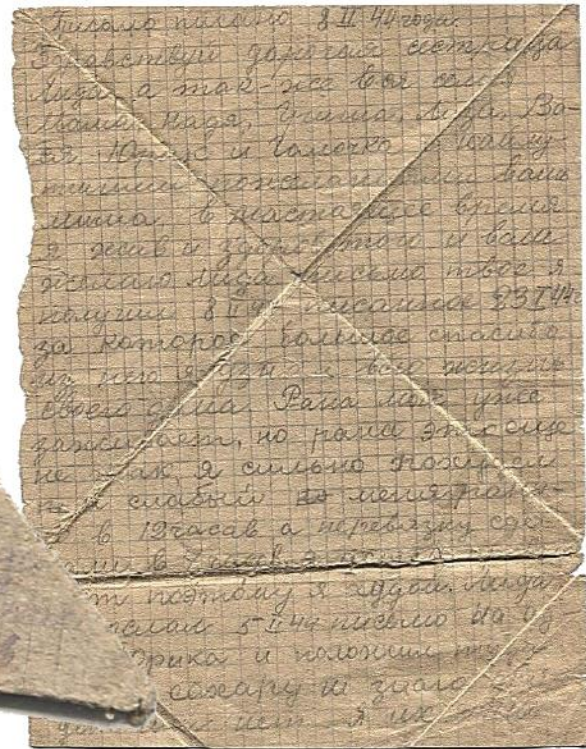 Письмо писано 8 II 44 года.
Здравствуй дорогая сестрица
Лида, а так-же вся семья
Мама, Надя, Гриша, Лиза, Ва-
ся и Галочка с
пожеланиями ваш
Миша в настаящее время
я жив и здоров того и вам
желаю Лида письмо твое я
получил 8 II 44 писанное 23 I 44
за которое большое спасибо
из него я узнал всю жизнь
своего дома. Рана моя уже
заживает, но рана это еще
не так, я сильно похудел
и слабый меня
в 12 часов а перевязку сде-
лали в
поэтому я худой. Лида
послал 5 II 44 письмо на
и положил туда
сахару не знаю
нет я их